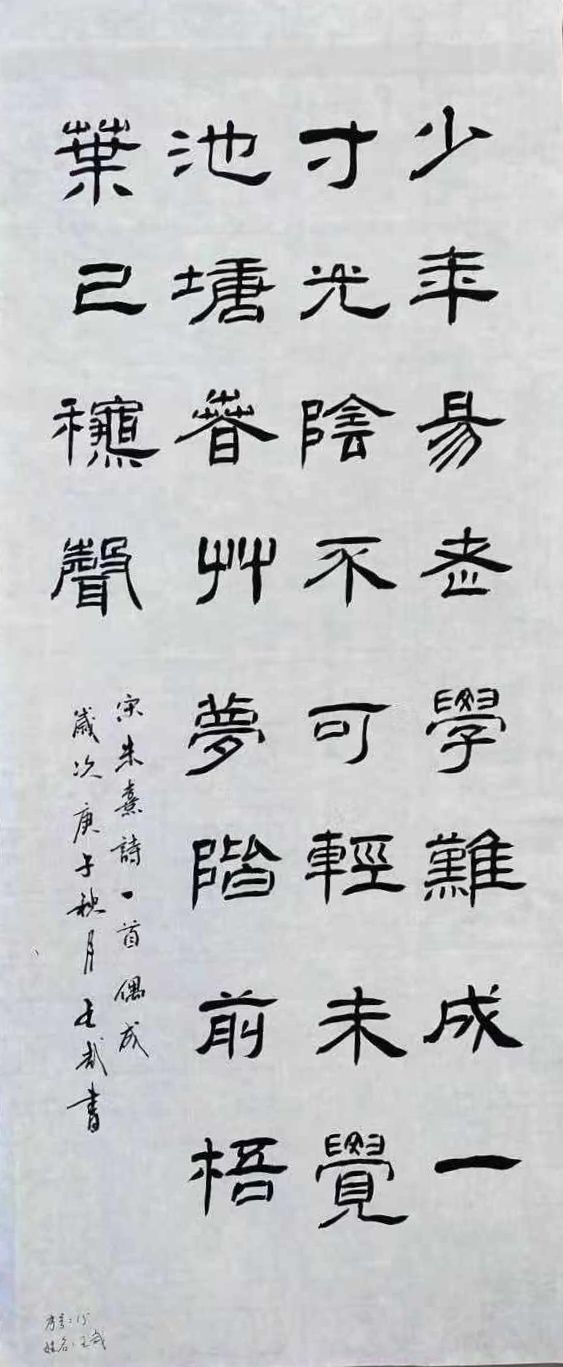 少年易老學難成一
寸光陰不可輕未覺
池塘春艸夢階前梧
葉已龝聲
宋朱熹詩一首偶成
歲次庚子秋月王武書
序号:15
姓名:王武